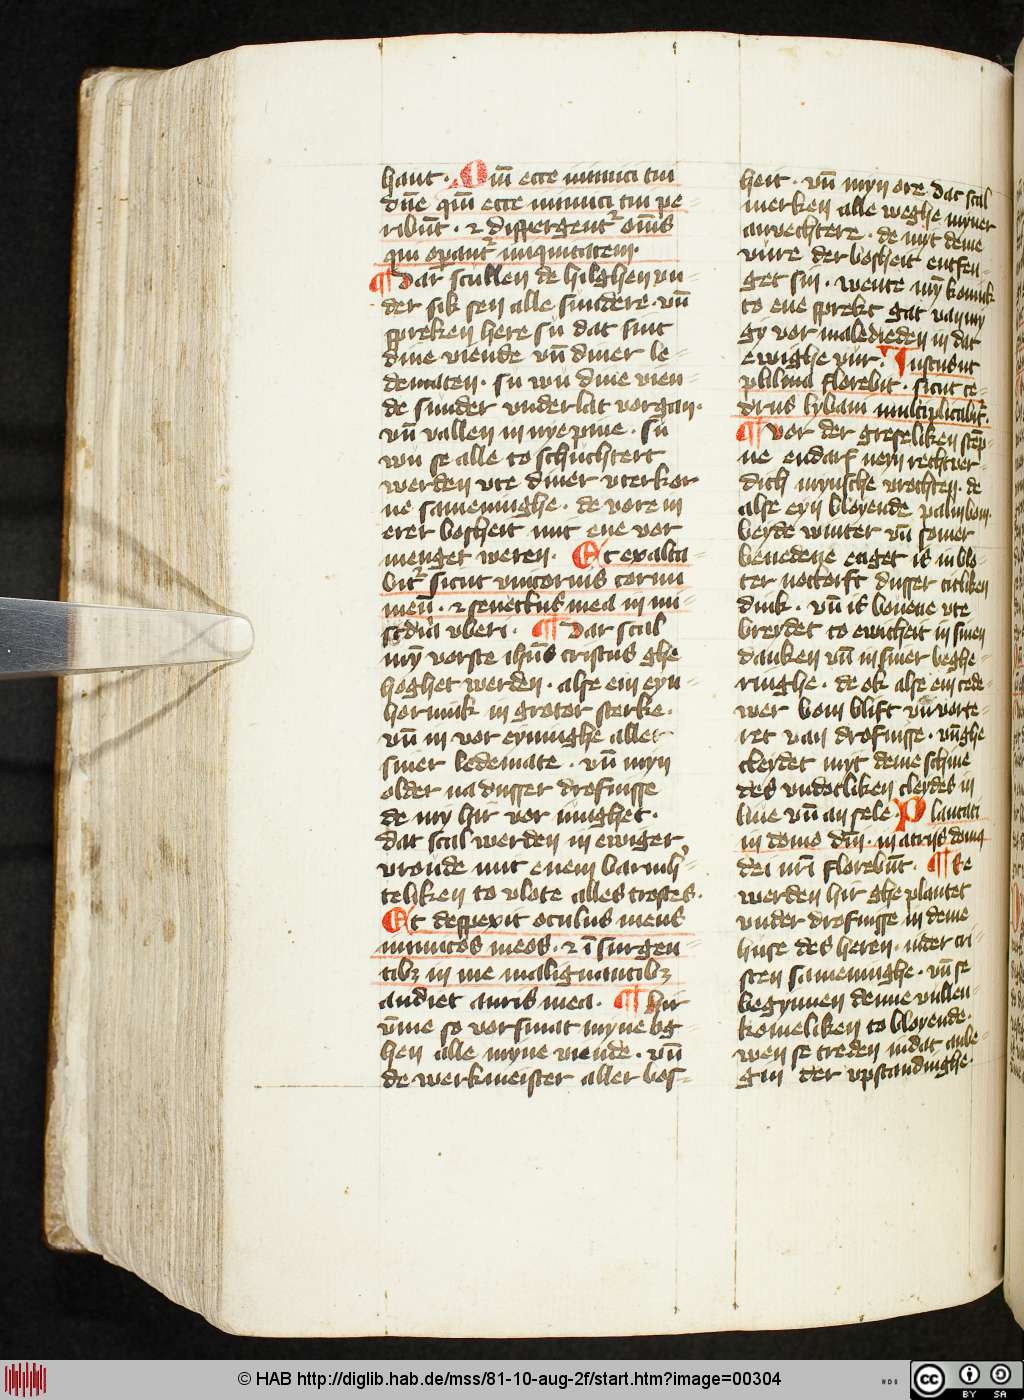 hant · Qm̄ ecce inimici tui
dn̄e qm̄ ecce inimici tui pe-
ribūt · ⁊ dispergent᷑ om̄s
qui operant᷑ iniquitatem ·
¶ Dar scullen de hilghen vn-
der sik sen alle sundere · vn̄
spreken here su dat sint
dine viende vn̄ diner le-
dematen · su wu dine vien-
de sunder vnderlat vorgan ·
vn̄ vallen in nye pine · su
wu se alle to schuchtert
werden vte diner vterkor
ne sameninghe · de vore in
erer bosheit mit ene vor
menget weren · Et exalta-
bit᷑ sicut vnicornis cornu
meū · ⁊ senectus mea in mi-
scd̓ia vberi · ¶ Dar scal
mȳ vorste ihūs cristus ghe
hoghet werden · alse ein eyn-
hornink in groter sterke ·
vn̄ in vor eyninghe aller
siner ledemate · vn̄ myn
older na dusser drofnisse
de my hir vor iunghet ·
dat scal werden in ewiger
vronde mit enem barmh̓-
teliken to vlote alles trostes ·
Et despexit oculus meus
inimicos meos · ⁊ ī surgen-
tibꝫ in me malignantibꝫ
audiet auris mea · ¶ Hir
vm̄e so vorsmat myne og-
hen alle myne viende · vn̄
de werkmeister aller bos-
heit · vn̄ myn ore dat scal
merken alle weghe myner
anvechtere · de myt deme
vure der bosheit entfen-
get sin · wente mȳ konink
to ene sprekt gat van my
gy vor maledieden in dat
ewighe vur · Iustus ut
palma florebit · sicut ce-
drus lybani multiplicabit᷑ ·
¶ Vor der greseliken stēp-
ne endarf neyn rechtver-
dich mynsche vrochten · de
alse eyn bloyende palmbom
beyde winter vn̄ somer
benedene enget is in blo-
ter nottorft dusser titliken
dink · vn̄ is bouene vte
breydet to ewicheit in sinen
danken vn̄ in siner beghe-
ringhe · de ok alse ein cede-
wer bom blift vn̄vorte-
ret van drofnisse · vn̄ghe
cleydet myt deme schine
des vndotliken cleydes in
liue vn̄ an sele · Plantati
in domo dn̄i · in atriis domꝰ
dei nr̄i florebūt · ¶ De
werden hir ghe plantet
vnder drofnisse in deme
huse des heren · in der cri-
sten sameninghe · vn̄ se
begynnen denne vullen-
komeliken to bloyende ·
wen se treden in dat anbe-
gin der vpstandinghe ·
© HAB http://diglib.hab.de/mss/81-10-aug-2f/start.htm?image=00304
CC BY SA